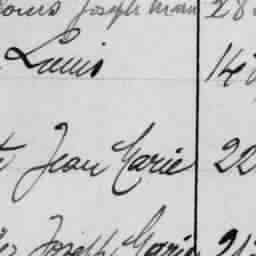 Joseph Marie 28
Louis 14
Jean Marie 22
Joseph Marie 21